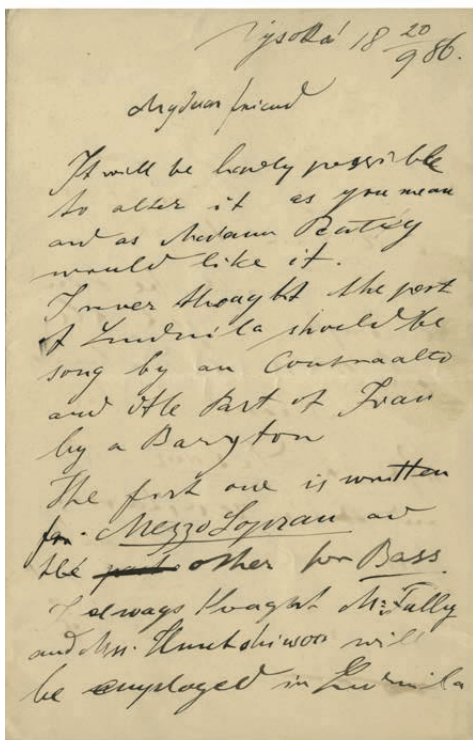 Vysoká 18 20/9 86.
My dear friend
It will be hardly possible
to alter it as you mean
and as Madame Patey
would like it.
I never thought the part
of Ludmila should be
song by an Contraalto
and the Part of Ivan
by a Baryton
The first one is written
for Mezzo Sopran and
the part other for Bass.
I always thought Mr: Fully
and Mss. Huntchinson will
be employed in Ludmila